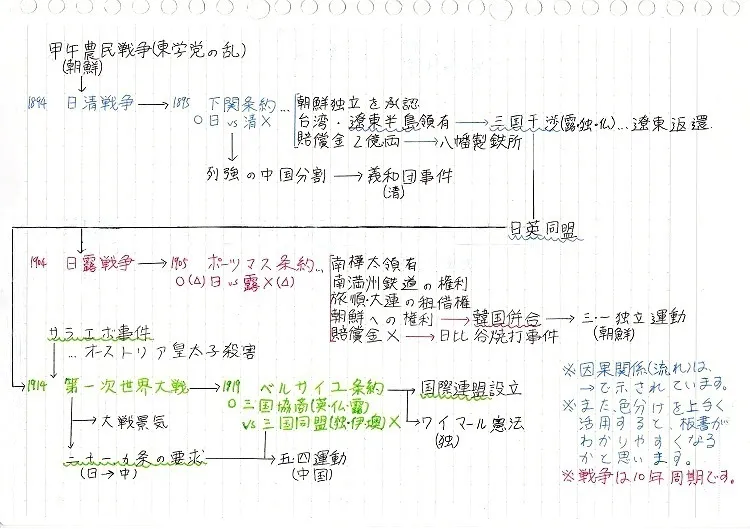 甲午農民戦争(東学党の乱)
(朝鮮)
1894 日清戦争 → 1895 下関条約… 朝鮮独立を承認
○日 vs 清× 台湾・遼東半島領有 → 三国干渉(露・独・仏)…遼東返還
賠償金 2億両 → 八幡製鉄所
列強の中国分割 → 義和団事件
(清)
日英同盟
1904 日露戦争 → 1905 ポーツマス条約… 南樺太領有
○(△)日 vs 露×(△) 南満州鉄道の権利
旅順・大連の租借権
朝鮮への権利 → 韓国併合 → 三・一独立運動
(朝鮮)
賠償金× → 日比谷焼打事件
サラエボ事件
…オーストリア皇太子殺害
1914 第一次世界大戦 → 1919 ベルサイユ条約 → 国際連盟設立
○三国協商(英・仏・露)
→大戦景気 vs 三国同盟(独・伊・墺)× ワイマール憲法
(独)
二十一カ条の要求 → 五・四運動
(日→中) (中国)
※因果関係(流れ)は、
→で示されています。
※また、色分けを上手く
活用すると、板書が
わかりやすくなる
かと思います。
※戦争は10年周期です。